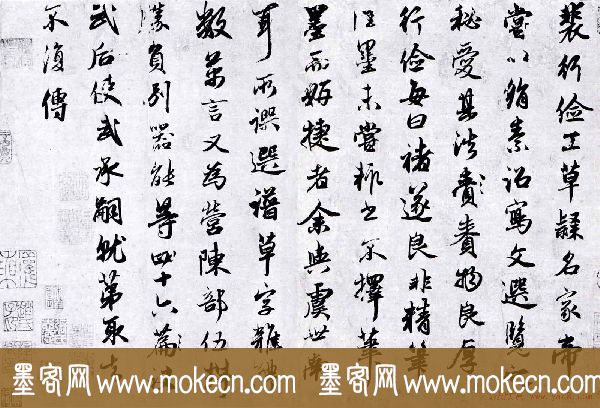 裴行儉工草隸名家帝
嘗以絹素詔寫文選覽
秘愛其法賚賚物良厚
行儉每曰褚遂良非精筆
佳墨未嘗輒書不擇筆
墨而妍捷者余與虞世南
耳所譔選譜草字雜
數萬言又為營陳部伍料
勝負別器能等四十六篇
武后使武承嗣就第取去
不復傳
墨客网 www.mokecn.com 墨客网 www.mokecn.com